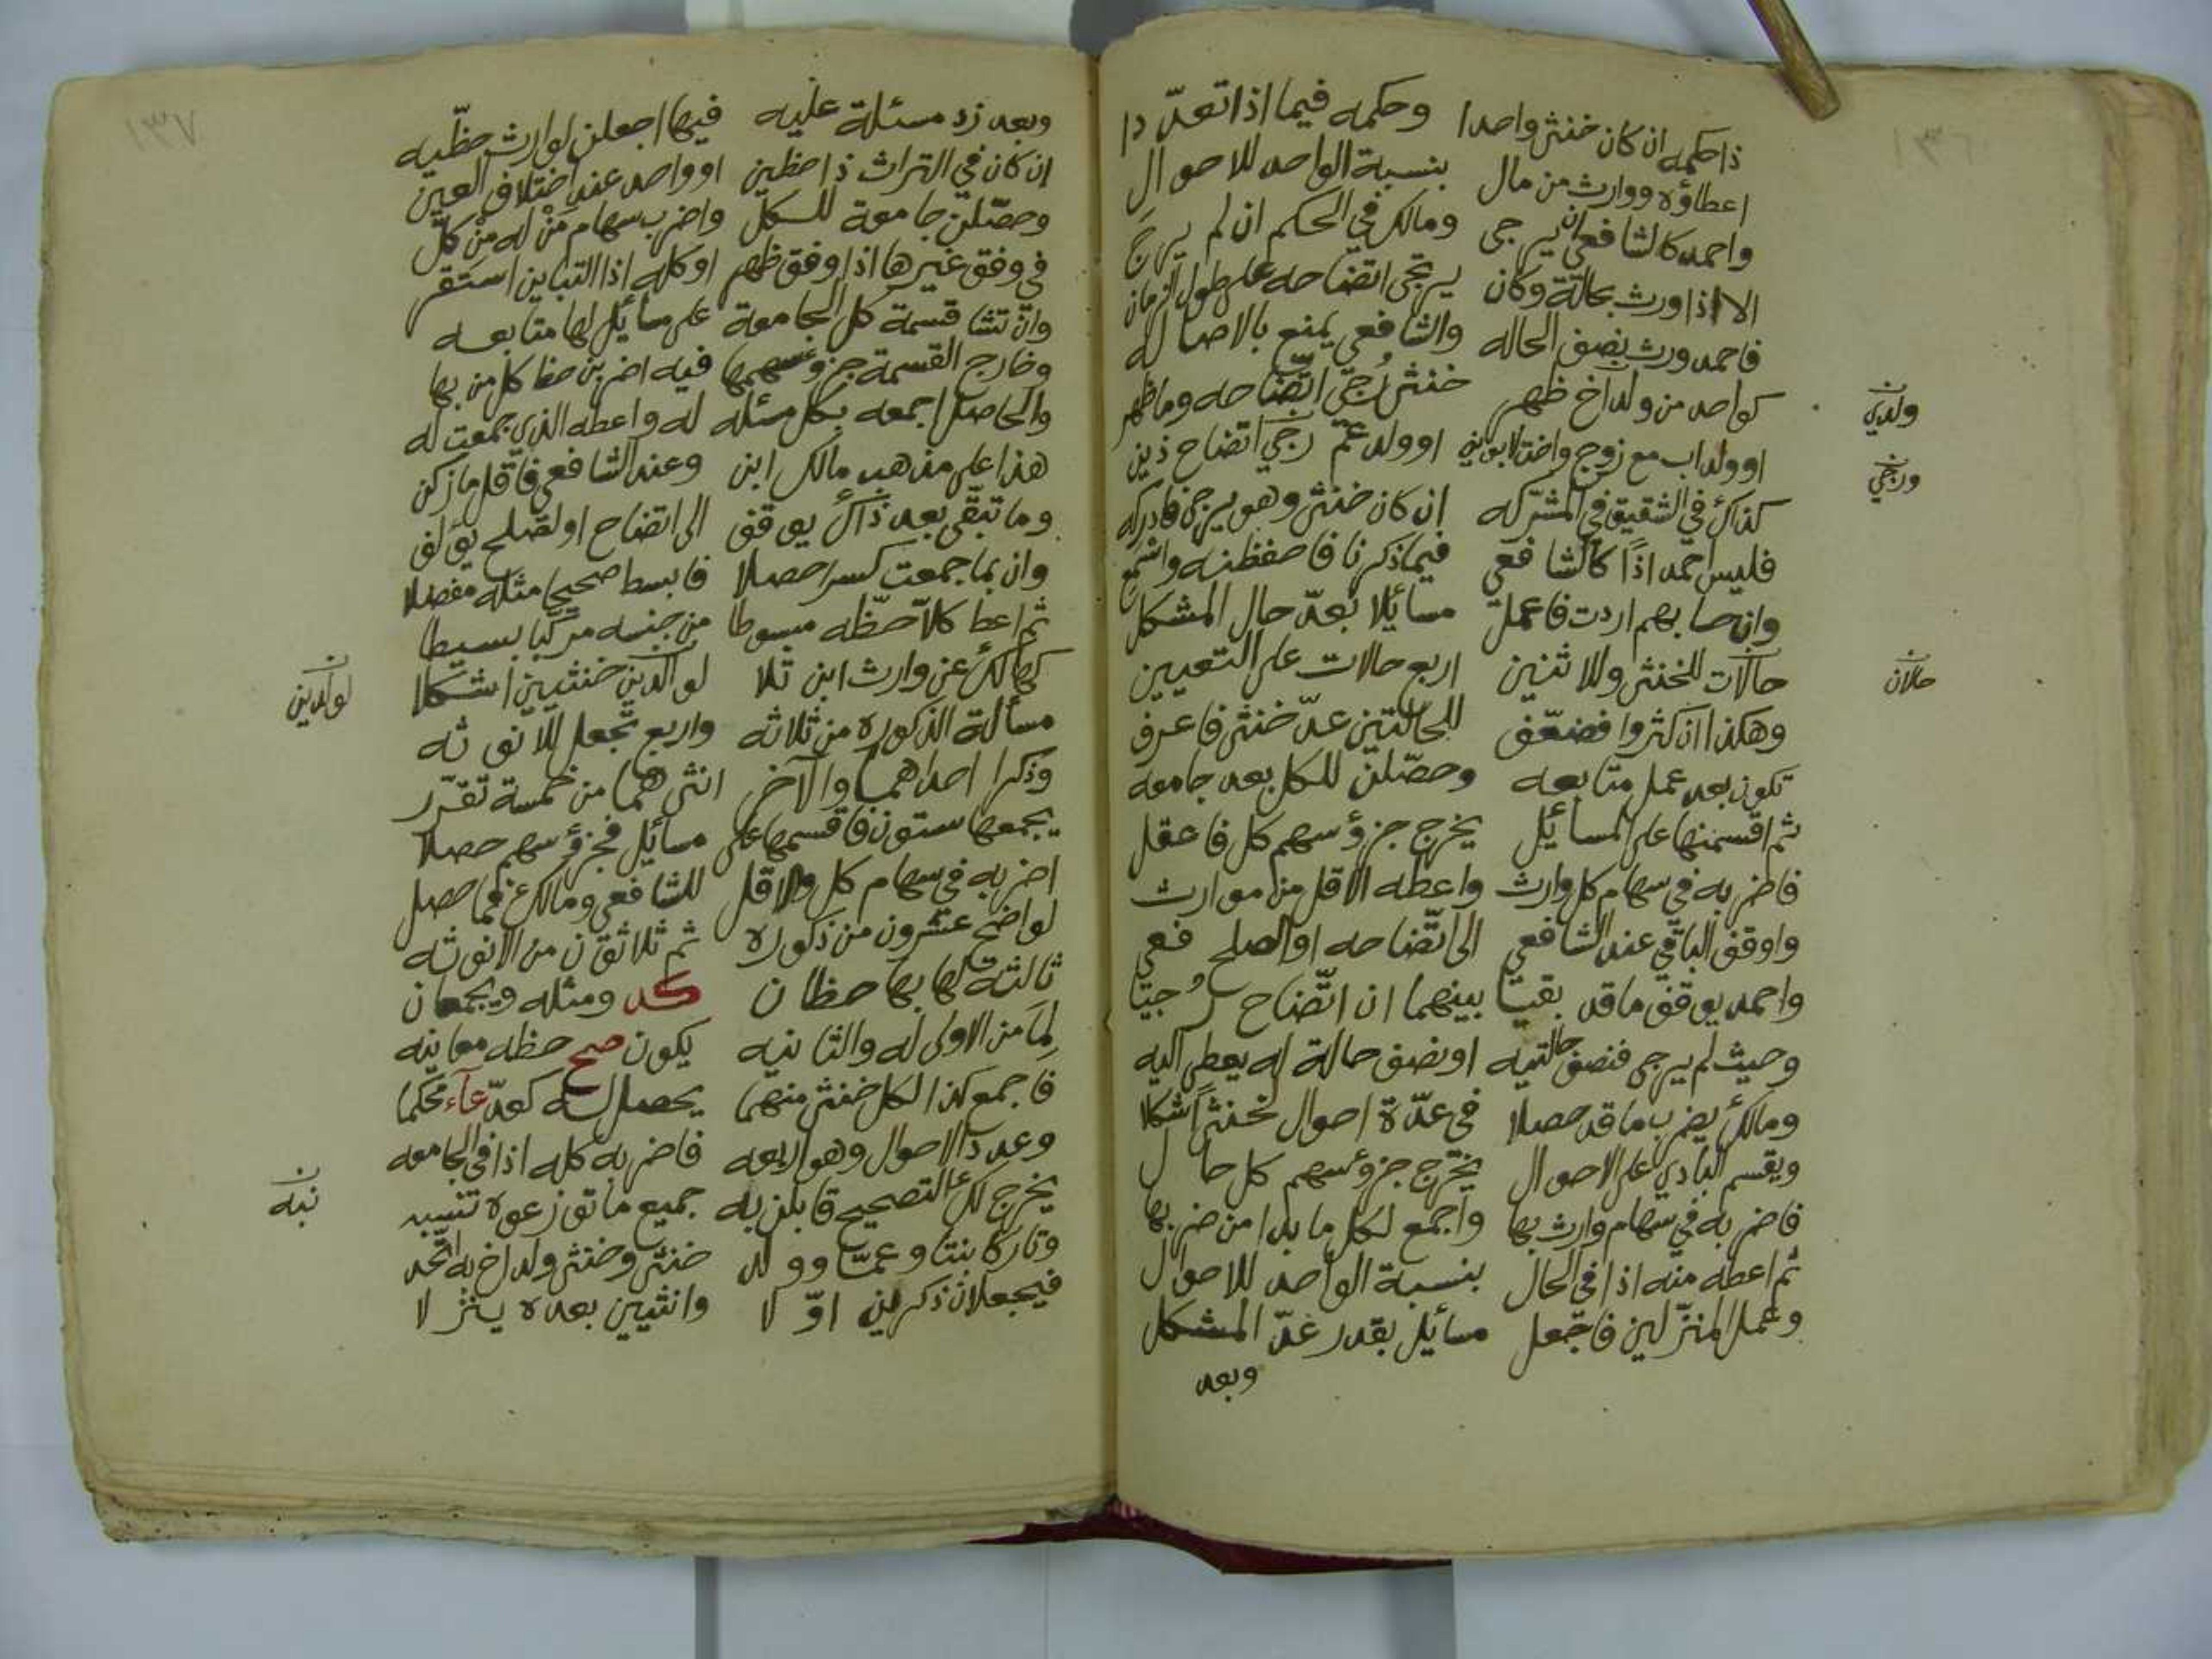 ١٣٦
ذا حكمه ان كان خنثى واحدا وحكمه فيما اذا تعدّدا
اعطاؤه ووارث من مال بنسبة الواحد للاحوال
واحمد كالشافعي ان يرجى ومالك في الحكم ان لم يرج
الا اذا ورث بحالة وكان يرتجى اتضاحه على طول الزمان
فاحمد ورث بضف الحاله والشافعي يمنع بالاصاله
كواحد من ولد اخ ظهر خنثى رُجى اتّضاحه وما ظهر
ولدي
اوولد اب مع زوج واخت لابوينى اوولد عمّ رجي اتضاح ذين
ورجي
كذاك في الشقيق في المشركه ان كان خنثى وهو يرجى فادركه
فليس احمد اذًا كالشافعي فيما ذكرنا فاحفظنه واسمع
وان حسابهم اردت فاعملن مسائلا بعدّ حال المشكل
حالات للخنثى وللاثنين اربع حالات على التعيين
حالان
وهكذا ان كثروا فضعّف للحالتين عدّ خنثى فاعرف
تكون بعد عمل متابعه وحصّلن للكل بعد جامعه
ثم اقسمنها على المسائل يخرج جزؤ سهم كل فاعقل
فاضرب به في سهام كل وارث واعطه الاقل من موارث
واوقف الباقي عند الشافعي الى اتّضاحه او الصلح فعي
واحمد يوقف ما قد بقيا بينهما ان اتّضاح رُجيا
وحيث لم يرجى فنصف حالتيه او نصف حالة له يعطى اليه
ومالك يضرب ما قد حصلا في عدّة احوال لخنثى اشكلا
ويقسم البادي على الاحوال يخرج جزؤ سهم كل حال
فاضرب به في سهام وارث بها واجمع لكل ما بدا من ضربها
ثم اعطه منه اذا في الحال بنسبة الواحد للاحوال
وعمل المنزّلين فاجعل مسائل بقدر عدّ المشكل
وبعد
١٣٧
وبعد زد مسئلة عليه فيها اجعلن لوارث حظّيه
ان كان في التراث ذا حظين او واحد عند اختلاف العين
وحصّلن جامعة للكل واضرب سهام مَنْ له مِنْ كلّ
في وفق غيرها اذا وفق ظهر او كله اذا التباين استقر
وان تشا قسمة كل الجامعة على مسائل لها متابعه
وخارج القسمة جزؤ سهمها فيه اضربن حظ كل من بها
والحاصل اجمعه بكل مسئله له واعطه الذي جمعت له
هذا على مذهب مالك ابن وعند الشافعي فاقل ما زكن
وما تبقّى بعد ذاك يوقف الى اتضاح او لصلح يؤلف
وان بما جمعت كسرا حصلا فابسط صحيحا مثله مفضلا
ثم اعط كلاّ حظّه مبسوطا من جنسه مركبا بسيطا
كهالك عن وارث ابن تلا لوالدين خنثيين اشكلا
لولدين
مسألة الذكوره من ثلاثه واربع تجعل للانوثه
وذكرا احداهما والآخر انثى هما من خمسة تقرّر
يجمعها ستون فاقسمها على مسائل فجزؤ سهم حصلا
اضرب به في سهام كل والاقل للشافعي ومالك عما حصل
لواضح عشرون من ذكوره ثم ثلاثون من الانوثه
ثالثة لها بها حظان كد ومثله ويجمعان
لِمَا من الاولى له والثانيه يكون صح حظه معاينه
فاجمع كذا لكل خنثى منهما يحصل له كعدّ عآء محكما
وعدد الاحوال وهو اربعه فاضرب به كله اذا في الجامعه
يخرج لك التصحيح قابلن به جميع ما توزعوه تنبيه
نبه
وتاركا بنتا وعمّا وولد خنثى وخنثى ولد اخ به اتّحد
فيجعلان ذكرين اوّلا وانثيين بعده ينزلا